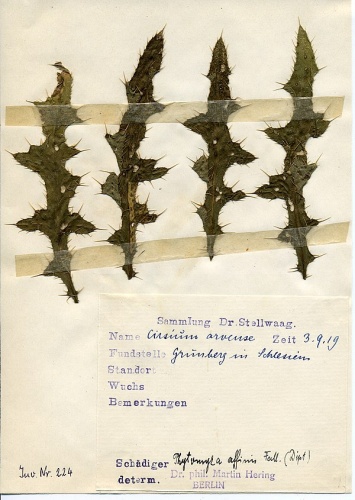 Sammlung Dr. Stellwaag.
Name Cirsium arvense Zeit 3.9.19
Fundstelle Grünberg in Schlesien
Standort
Wuchs
Bemerkungen
Schädiger Phytomyza affinis Fall. (Dipt)
determ. Dr. phil. Martin Hering
BERLIN
Inv. Nr. 224